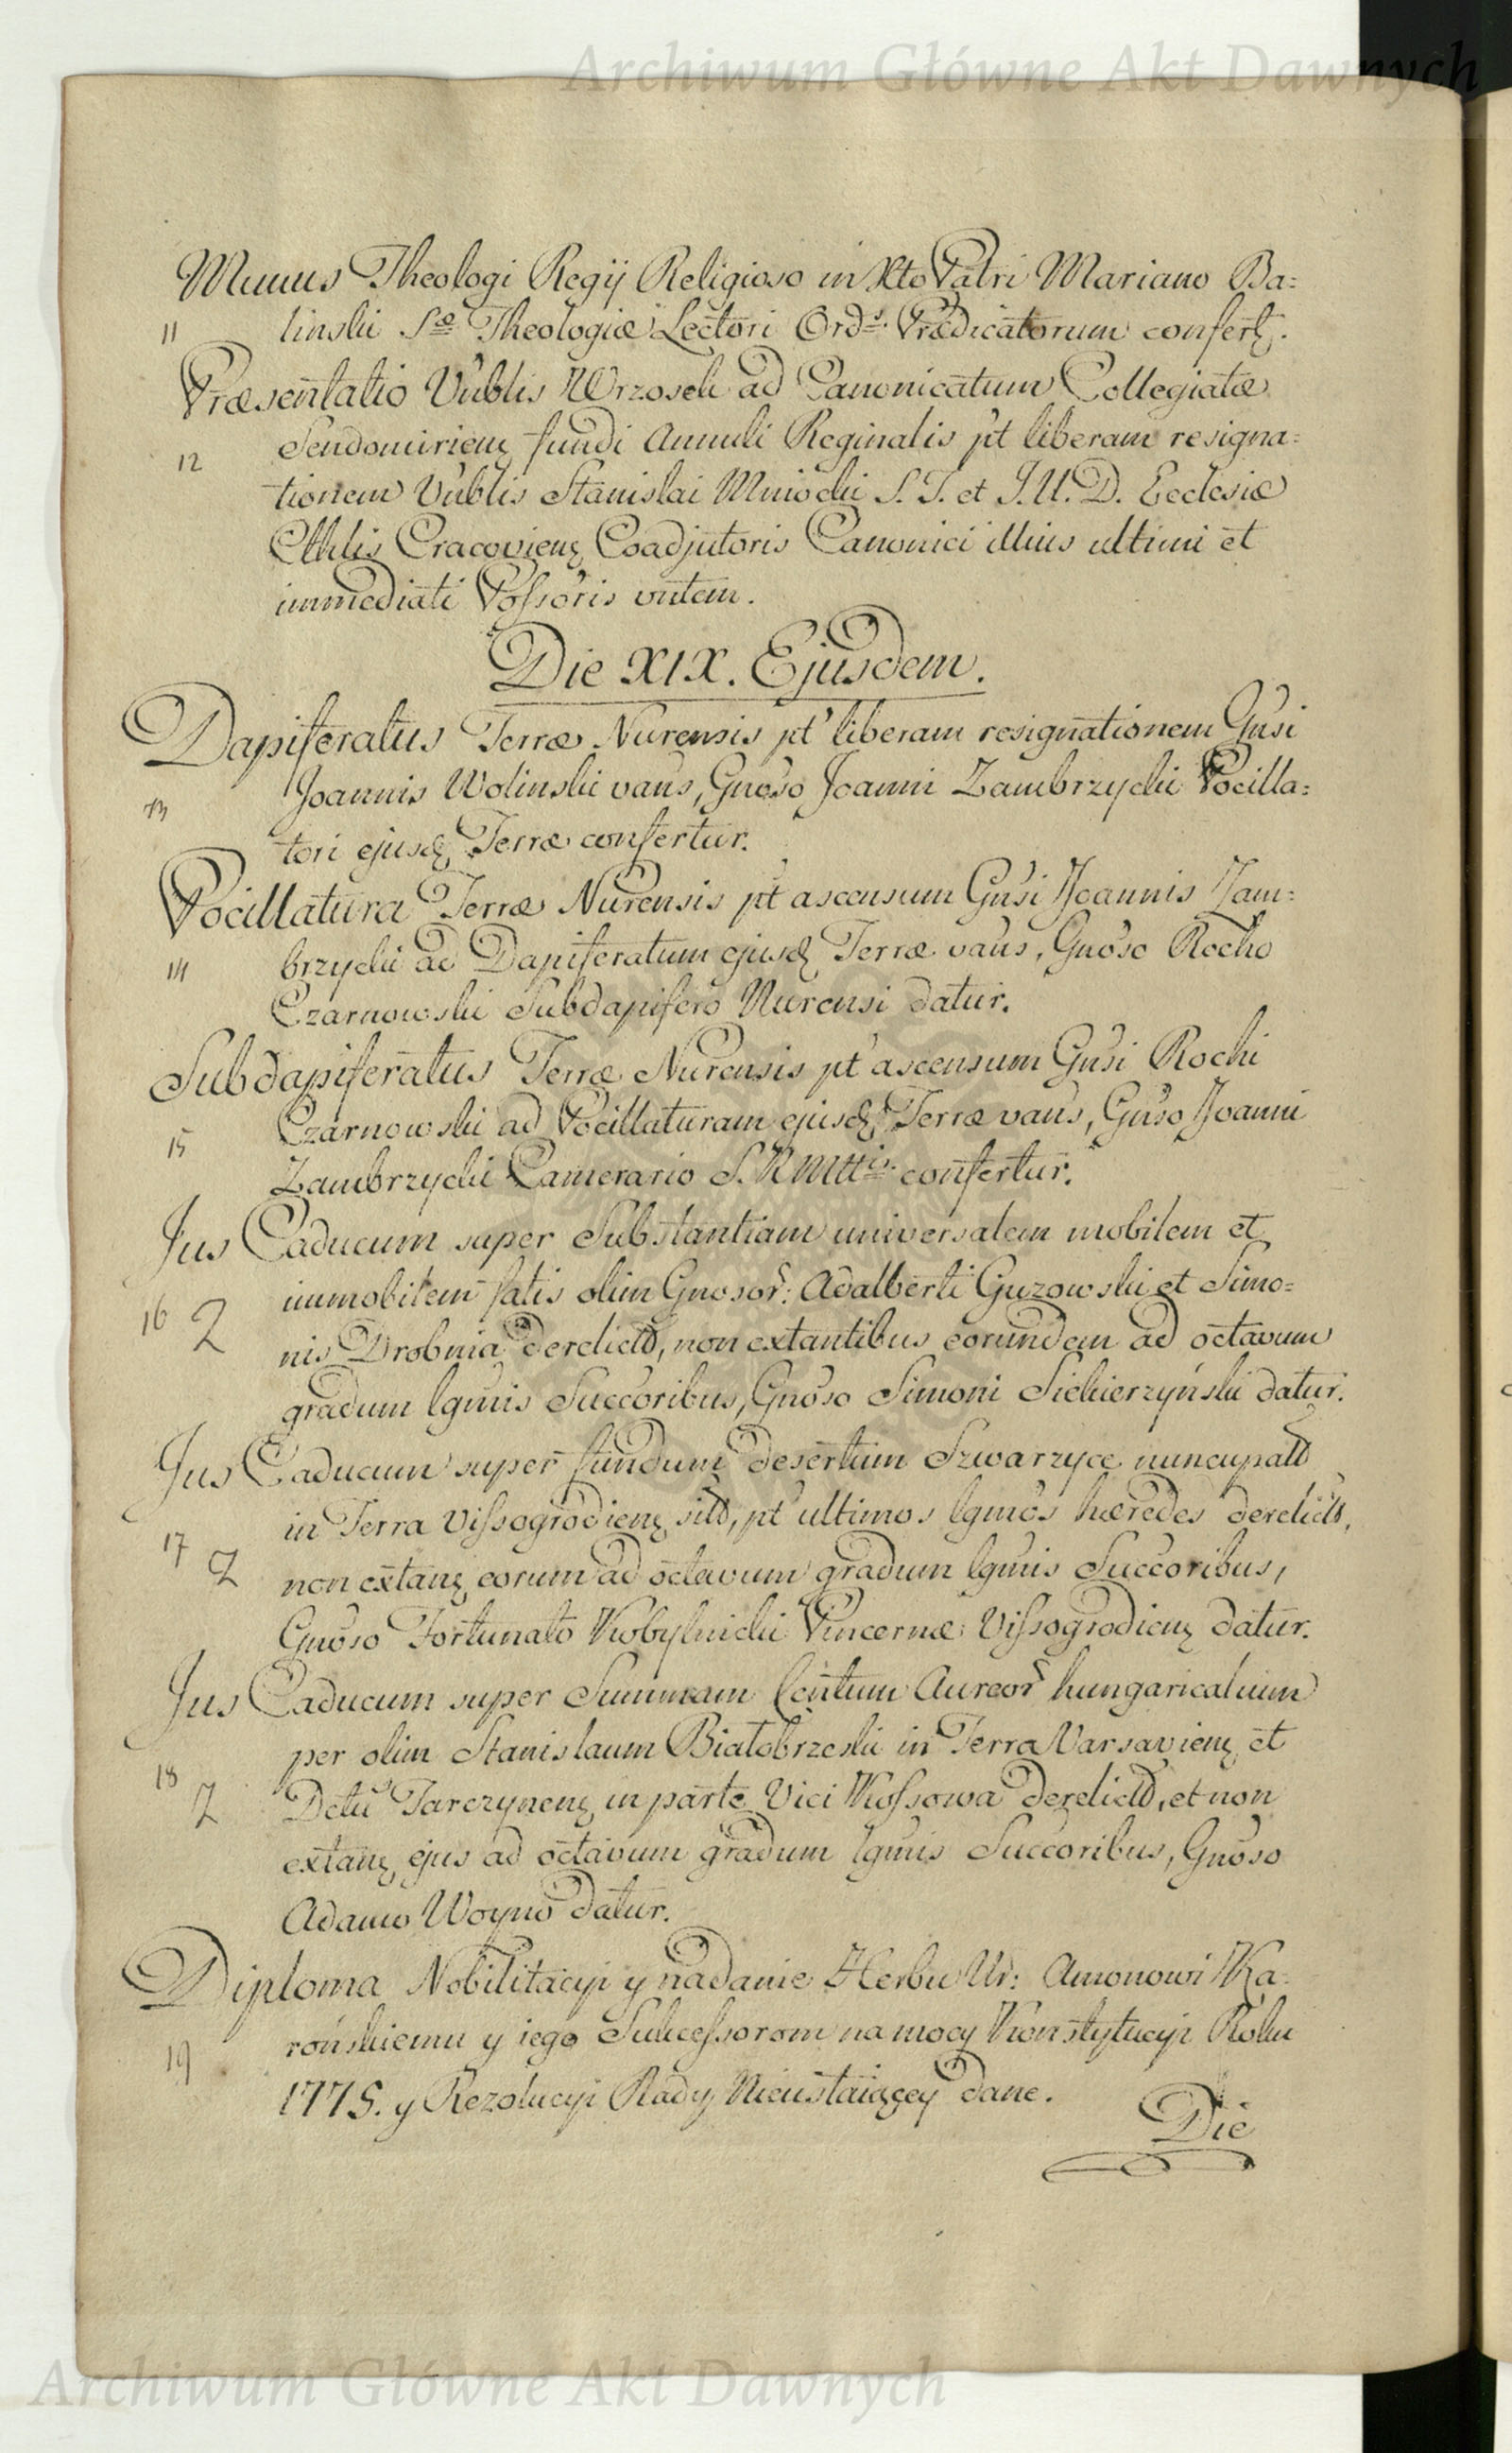 Archiwum Główne Akt Dawnych
Munus Theologi Regij Religioso in Xto Patri Mariano Ba=
11 linski S.æ Theologiæ Lectori Ord.s Prædicatorum confert.
Præsentatio Vnblis Wrzosek ad Canonicatum Collegiatæ
12 Sendomirien fundi Annuli Reginalis pt liberam resigna=
tionem Vnblis Stanislai Mniocki S. T. et J. U. D. Ecclesiæ
Cthlis Cracovien Coadjutoris Canonici illius ultimi et
immediati Possoris vntem.
Die XIX. Ejusdem.
Dapiferatus Terræ Nurensis pt liberam resignationem Gnsi
13 Joannis Wolinski vans, Gnoso Joanni Zambrzycki Pocilla=
tori ejusd Terræ confertur.
Pocillatura Terræ Nurensis pt ascensum Gnsi Joannis Zam=
14 brzycki ad Dapiferatum ejusd Terræ vans, Gnoso Rocho
Czarnowski Subdapifero Nurensi datur.
Subdapiferatus Terræ Nurensis pt ascensum Gnsi Rochi
15 Czarnowski ad Pocillaturam ejusd Terræ vans, Gnso Joanni
Zambrzycki Camerario S. R Mttis confertur.
Jus Caducum super Substantiam universalem mobilem et
16 2 immobilem fatis olim Gnosor: Adalberti Guzowski et Simo=
nis Drobnia derelictā, non extantibus eorundem ad octavum
gradum lgmis Succoribus, Gnoso Simoni Siekierzyński datur.
Jus Caducum super fundum desertum Szwarzyce nuncupatū
17 2 in Terra Vissogrodien sitū, pt ultimos lgmos hæredes derelictū,
non extan eorum ad octavum gradum lgmis Succoribus,
Gnoso Fortunato Kobylnicki Pincernæ Vissogrodien datur.
Jus Caducum super Summam Centum Aureor hungaricalium
18 2 per olim Stanislaum Białobrzeski in Terra Varsavien et
Dctu Tarczynen in parte Vici Kossowa derelictā, et non
extan ejus ad octavum gradum lgmis Succoribus, Gnoso
Adamo Woyno datur.
Diploma Nobilitacyi y nadanie Herbu Ur: Amonowi Ka=
19 rońskiemu y iego Sukcessorom na mocy Konstytucyi Roku
1775. y Rezolucyi Rady Nieustaiącey dane.
Die
Archiwum Główne Akt Dawnych